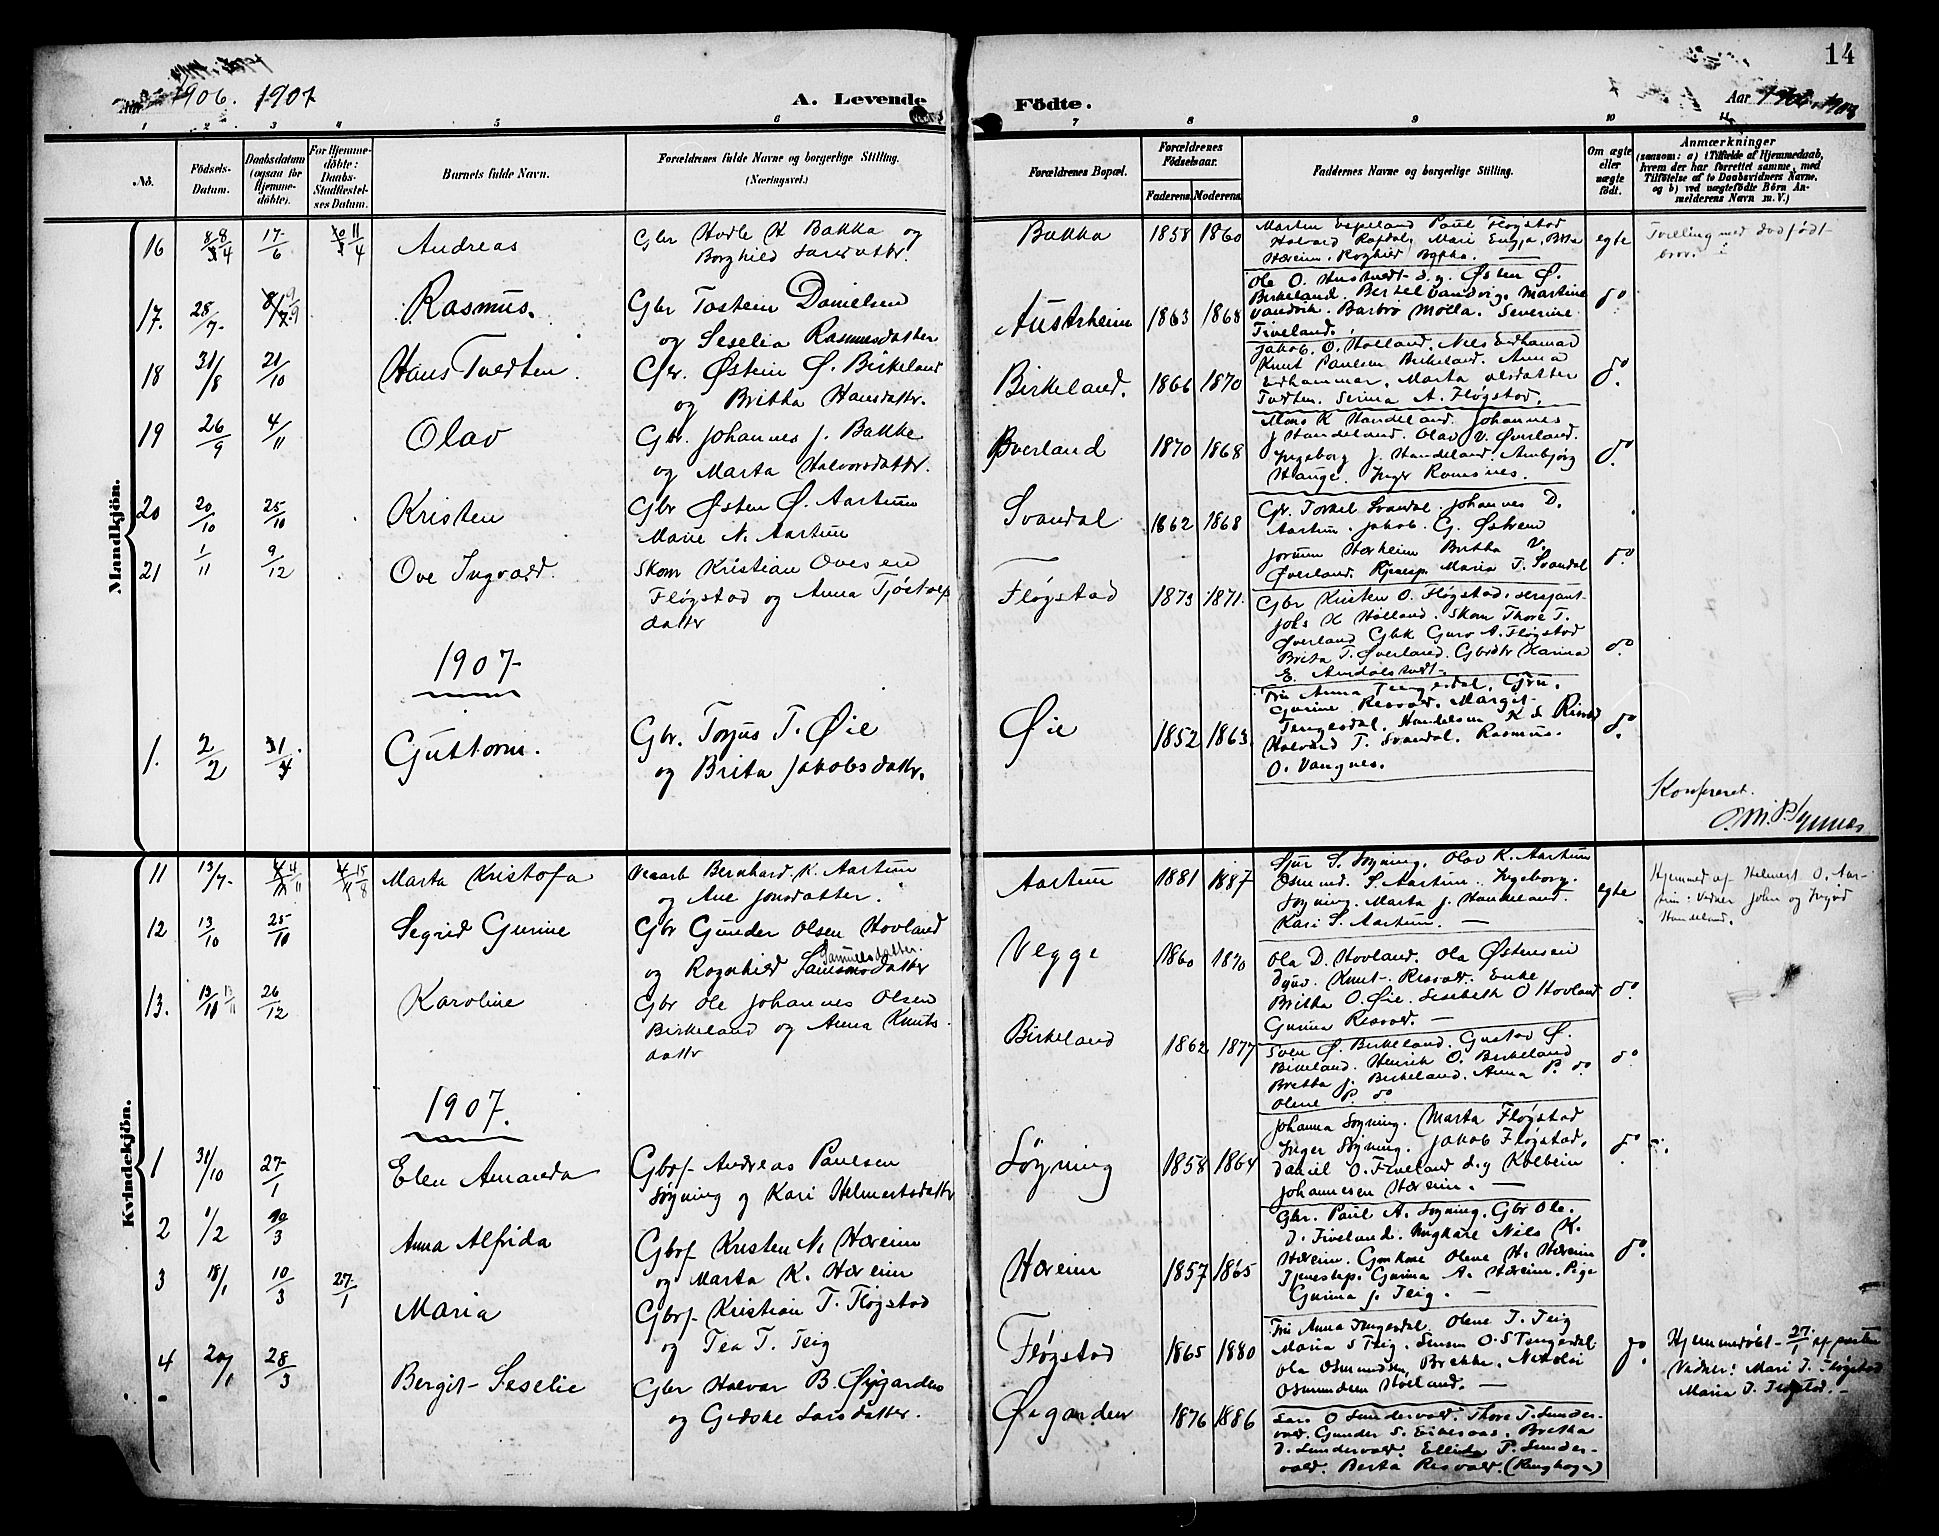 14
1906. 1907
A. Levende
Födte.
Aar
1 2 3 4 5 6 7 8 9 10
No.
Födsels-
Datum.
Daabsdatum
(ogsaa for
Hjemme-
döbte).
For Hjemme-
döbte:
Daabs-
Stadfæstel-
ses Datum.
Barnets fulde Navn.
Forældrenes fulde Navne og borgerlige Stilling.
(Næringsvei.)
Forældrenes Bopæl.
Forældrenes
Fødselsaar.
Faderens. Moderens.
Faddernes Navne og borgerlige Stilling.
Om ægte
eller
uægte
födt.
Anmærkninger
(saasom: a) i Tilfælde af Hjemmedaab,
hvem der har forrettet samme, med
Tilføielse af to Daabsvidners Navne,
og b) ved uægtefödte Börn An-
melderens Navn m. V.)
Mandkjön.
16 8/4 17/6 11/4 Andreas
Gbr Hodle K Bakka og
Borghild Larsdattr.
Bakka 1858 1860
Martin Espeland Paul Fløgstad
Halvard Mari Brita
Hæreim.
egte
Tvilling med dødfødt
bror.
17. 28/7 Rasmus.
Gbr Tostein Danielsen
og Seselia Rasmusdatter
Austrheim 1863 1868
Ole O. Hustvedt d.y. Østen Ø.
Birkeland. Bertel Vandvig, Martine
Vandvik. Barbro Mølla. Severine
Tiveland.
do
18 31/8 21/10 Hans Tvedten
Gbr. Østein Ø. Birkeland
og Britha Hansdattr.
Birkeland. 1866 1870
Jakob. O. Holland. Nils Eidhamar
Knut Paulsen Birkeland. Anna
Eidhammer. Marta Olsdatter
Tvdten. Serina A. Fløgstad.
do
19 26/9 4/11 Olav
Gbr. Johannes J. Bakke
og Marta Halvorsdattr.
Øverland 1870 1868
Mons K Handeland. Johannes
J Handeland. Olav V. Øverland.
Ingeborg J. Handeland. Ambjørg
Hauge. Inger Ramsnes.
do
20 20/10 25/10 Kristen
Gbr Østen Ø. Aartun
Marie N. Aartun
Svandal 1862 1868
Gbr. Torkel Svandal. Johannes D.
Aartun. Jakob. G. Østrem
Jorunn Hæreim Britha V.
Øverland. Tjenesp. Maria T. Svandal
do
21 1/11 9/12 Ove Ingvald.
Skom Kristian Ovesen
Fløgstad og Anna Tjøstolfs
datter
Fløgstad 1873 1871.
Gbr Kristen O. Fløgstad. sersjant
Johs K Hølland. Skom Thore T.
Øverland Gbk Guro A. Fløgstad
Brita T. Øverland. Gbrdtr Karina
E. Amdalstvedt.
do
1907
1. 2/2 Guttorm.
Gbr. Torjus T. Øie
og Brita Jakobsdattr.
Øie 1852 1863.
Fru Anna Tengesdal. Gbru.
Gurine Resvold. Margit
Tengesdal. Handelsm K
Halvard T. Svandal. Rasmus.
O. Vangnes.
do
Konfereret.
Kvindekjön.
11 13/7 Marta Kristofa
Veiarb Bernhard. K. Aartun
og Ane Jonsdatter.
Aartun 1881 1887
Sjur S. Søgning. Olav K. Aartun
Osmund. S. Aartun. Ingeborg.
Søgning. Marta J. Handeland.
Kari S. Aartun.
egte
Hjemmed af Helmert O. Aar-
tun: Vidner John og Ingvd
Handeland.
12 13/10 25/10 Segrid Gurine
Gbr Gunder Olsen Hovland
og Ragnhild Samuelsdatter
Samuelsdatter.
Vegge 1860 1870
Ola D. Hovland. Ola Østensen
Dyvd. Knut Resvold. Enke
Britha O. Øie. Sesebeth O Hovland
Gurina Resvold.
do.
13. 13/11 26/12 Karoline
Gbr Ole Johannes Olsen
Birkeland og Anna Knuts
dattr
Birkeland 1862 1877
Sven Ø. Birkeland. Gustav Ø.
Birkeland. Henrik O. Birkeland
Bretha J. Birkeland. Anna P. do
Olene P. do
do
1907.
1 31/10 27/1 Elen Amanda
Gbrf. Andreas Paulsen
Søgning og Kari Helmertsdattr
Søgning 1858 1864
Johanna Søgning. Marta Fløgstad
Inger Søgning. Jakob Fløgstad,
Daniel O. Tiveland d.y Kolbein
Johannesen Hæreim.
do
2 1/2 10/3 Anna Alfrida
Gbrf Kristen N. Hæreim
og Marta K. Hæreim
Hæreim 1857 1865
Gbr. Paul A. Søgning. Gbr Ole.
D. Tiveland. Ungkare Nils K.
Hæreim. Olene H. Hæreim
Tjenestep. Gurina A. Hæreim. Pige
Gurina J. Teig.
do.
3 18/1 10/3 27/1 Maria
Gbrf. Kristian T. Fløgstad
og Tea T. Teig
Fløgstad 1865 1880
Fru Anna Tengesdal. Olene T. Teig
Maria S Teig. Simon O. S Tengesdal
Ola Osmundsen Brekke. Nikolai
Osmundsen Høiland.
do.
Hjemmedøbt 27/1 af
Vidner: Mari T. Fløgstad
Maria T. Fløgstad.
4 20/1 28/3 Bergit Seselie
Gbr Halvar B. Øigarden
og Gidske Larsdatter.
Øigarden 1876 1886
Lars O Sundervold. Thore T. Sunder-
vold. Gunder S. Eikesaas. Bretha
D. Sundervold. Ellida P. Sunder-
vold. Berta Resvold.